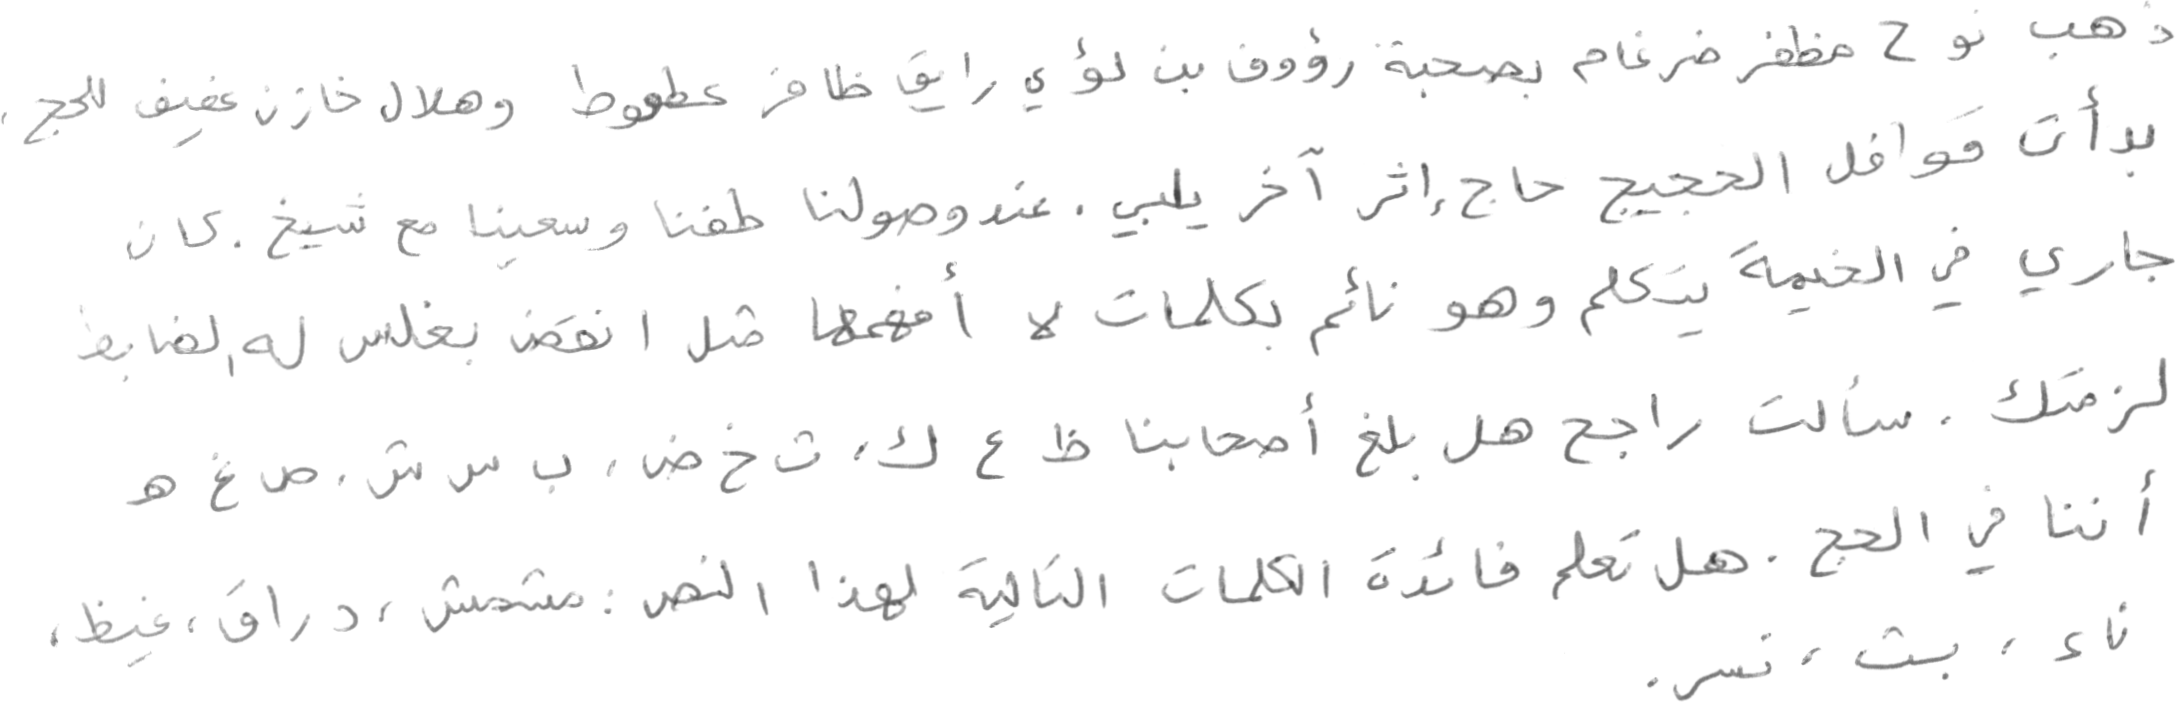 ذهب نوح مظفر ضرغام بصحبة رؤوف بن لؤي رايق ظافر عطعوط وهلال خازن عفيف للحج .
بدأت قوافل الحجيج حاج إثر آخر يلبي . عند وصولنا طفنا وسعينا مع شيخ . كان
جاري في الخيمة يتكلم وهو نائم بكلمات لا أفهمها مثل انقض بغلس له الضابط
لزمتك . سألت راجح هل بلغ أصحابنا ظ ع ك، ث خ ض، ب س ش، ص غ ه
أننا في الحج . هل تعلم فائدة الكلمات التالية لهذا النص : مشمش ، دراق ، غيظ ،
ناء ، بث ، نسر .